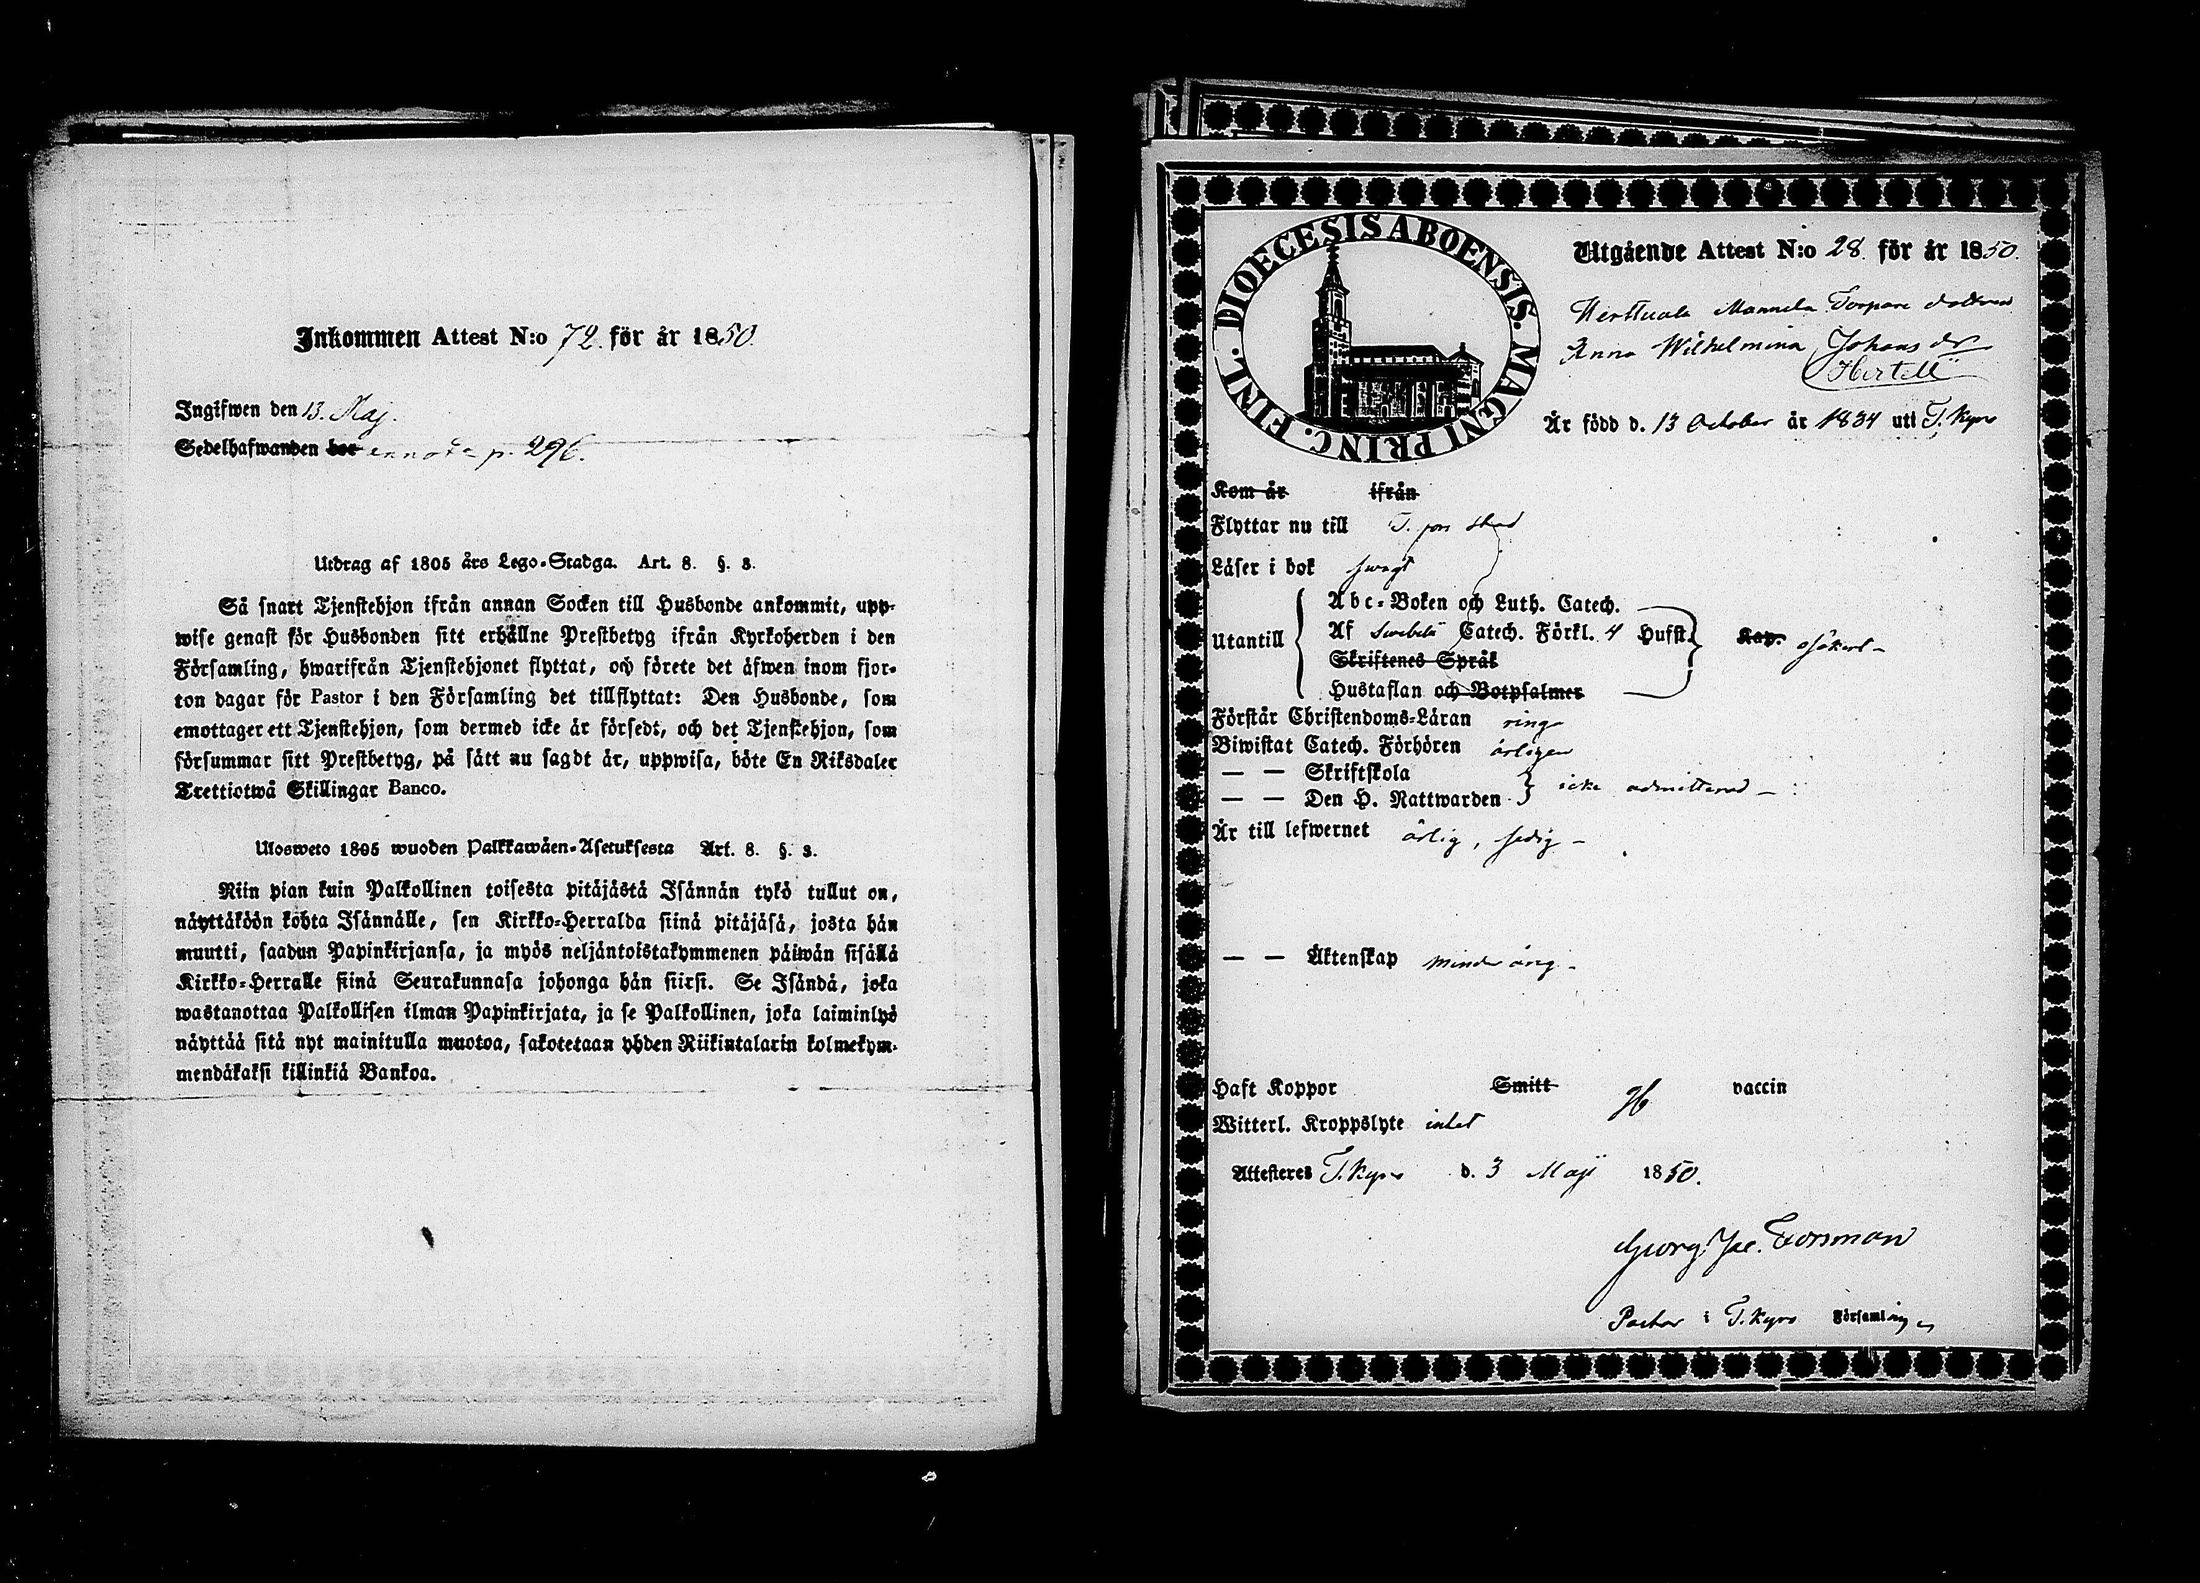 Inkommen Attest N:o 72. för år 1850.
Ingifwen den 13. Maj.
Sedelhafwanden bor annot. p. 296.
Utdrag af 1805 års Lego-Stadga. Art. 8. §. 3.
Så snart Tjenstehjon ifrån annan Socken till Husbonde ankommit, upp-
wise genast för Husbonden sitt erhållne Prestbetyg ifrån Kyrkoherden i den
Församling, hwarifrån Tjenstehjonet flyttat, och förete det äfwen inom fjor-
ton dagar för Pastor i den Församling det tillflyttat: Den Husbonde, som
emottager ett Tjenstehjon, som dermed icke är försedt, och det Tjenstehjon, som
försummar sitt Prestbetyg, på sätt nu sagdt är, uppwisa, böte En Riksdaler
Trettiotwå Skillingar Banco.
Ulosweto 1805 wuoden Palkkawäen-Asetuksesta Art. 8. §. 3.
Niin pian kuin Palkollinen toisesta pitäjästä Isännän tykö tullut on,
näyttäköön kohta Isännälle, sen Kirkko-Herralda siinä pitäjäsä, josta hän
muutti, saadun Papinkirjansa, ja myös neljäntoistakymmenen päiwän sisällä
Kirkko-Herralle siinä Seurakunnasa johonga hän siirsi. Se Isändä, joka
wastanottaa Palkollisen ilman Papinkirjata, ja se Palkollinen, joka laiminlyö
näyttää sitä nyt mainitulla muotoa, sakotetaan yhden Riikintalarin kolmekym-
mendäkaksi killinkiä Bankoa.
DIOECESIS ABOENSIS. MAGNI PRINC. FINL.
Utgående Attest N:o 28. för år 1850.
Herttuala Mannela Torpare dottren
Anna Wilhelmina Johans dr
Hertell
Är född d. 13 October år 1834 uti T. Kyro
Kom år ifrån
Flyttar nu till T. fors stad
Läser i bok swagt
Utantill
Abc-Boken och Luth. Catech.
Af Swebelii Catech. Förkl. 4 Hufst. Kap. osäkert
Skriftenes Språk
Hustaflan och Botpsalmer
Förstår Christendoms-Läran ringa
Biwistat Catech. Förhören årligen
— — Skriftskola
— — Den H. Nattwarden icke admitterad
Är till lefwernet ärlig, sedig
— — Äktenskap minderårig
Haft Koppor Smitt vaccin
Witterl. Kroppslyte intet
Attesteres T. Kyro d. 3 Maji 1850.
Georg Jac. Forsman
Pastor i T. Kyro Församling